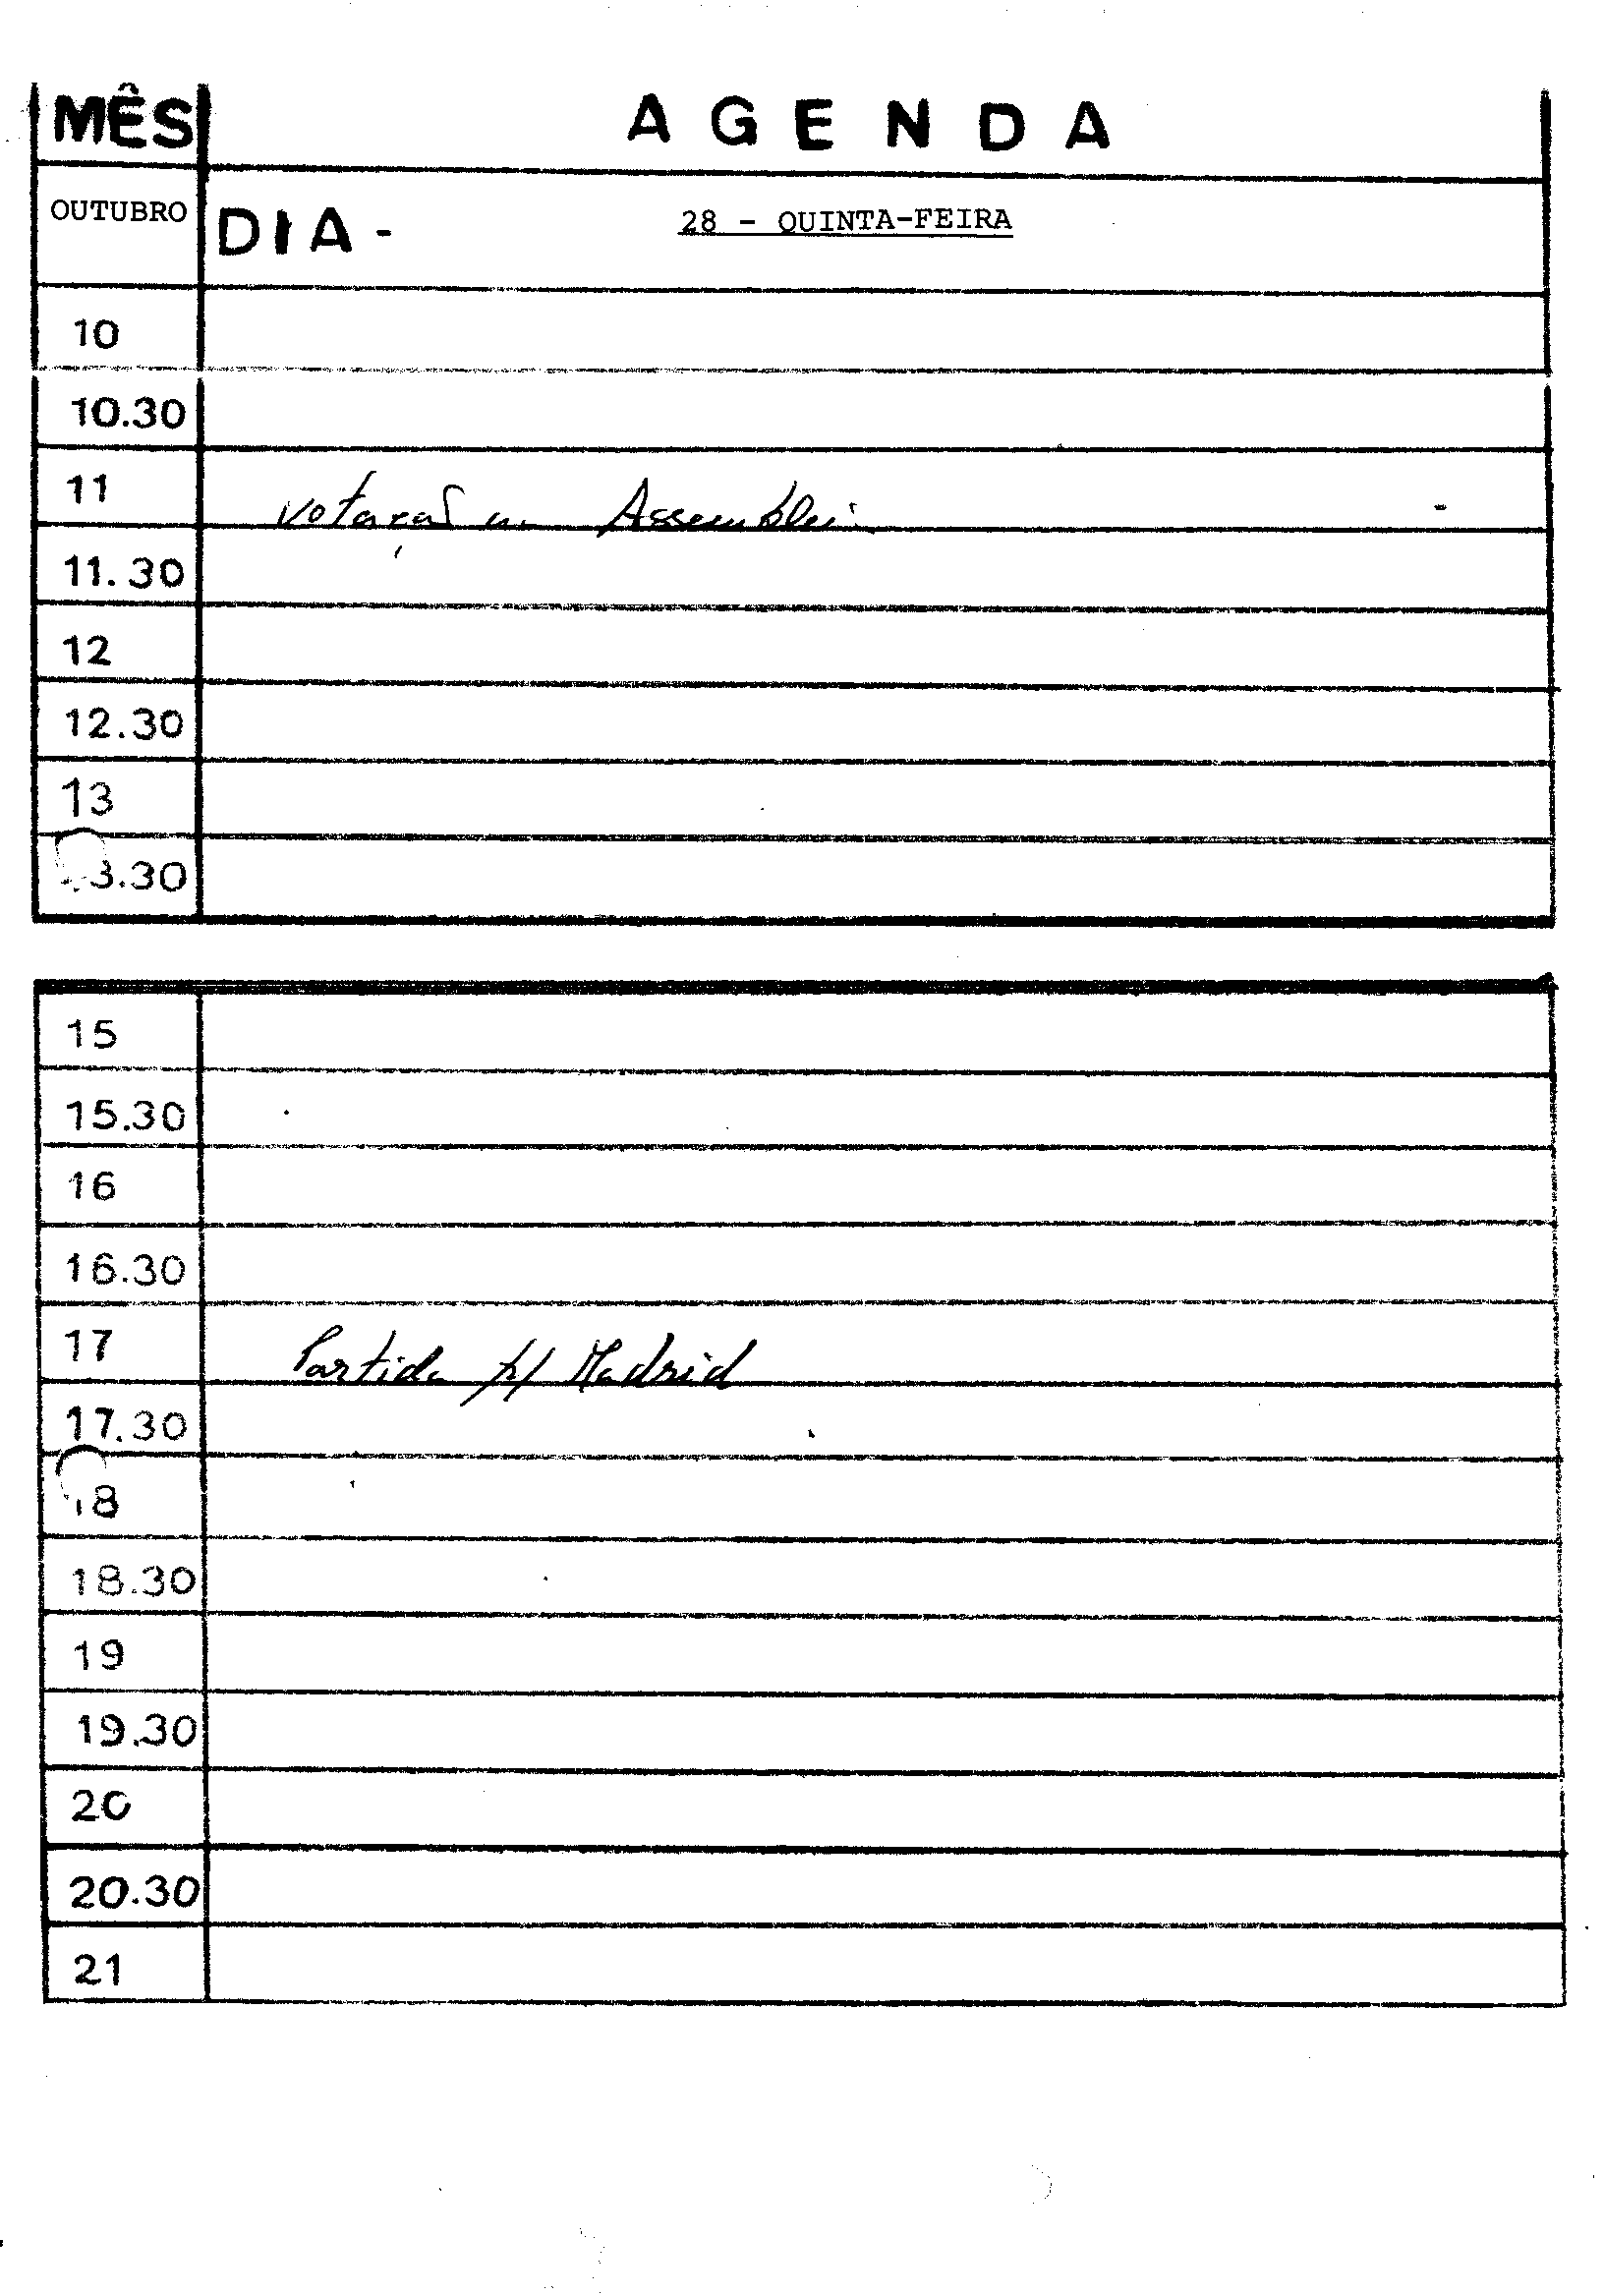 MÊS AGENDA
OUTUBRO DIA - 28 - QUINTA-FEIRA
10
10.30
11 Votação na Assembleia
11.30
12
12.30
13
13.30
15
15.30
16
16.30
17 Partida p/ Madrid
17.30
18
18.30
19
19.30
20
20.30
21